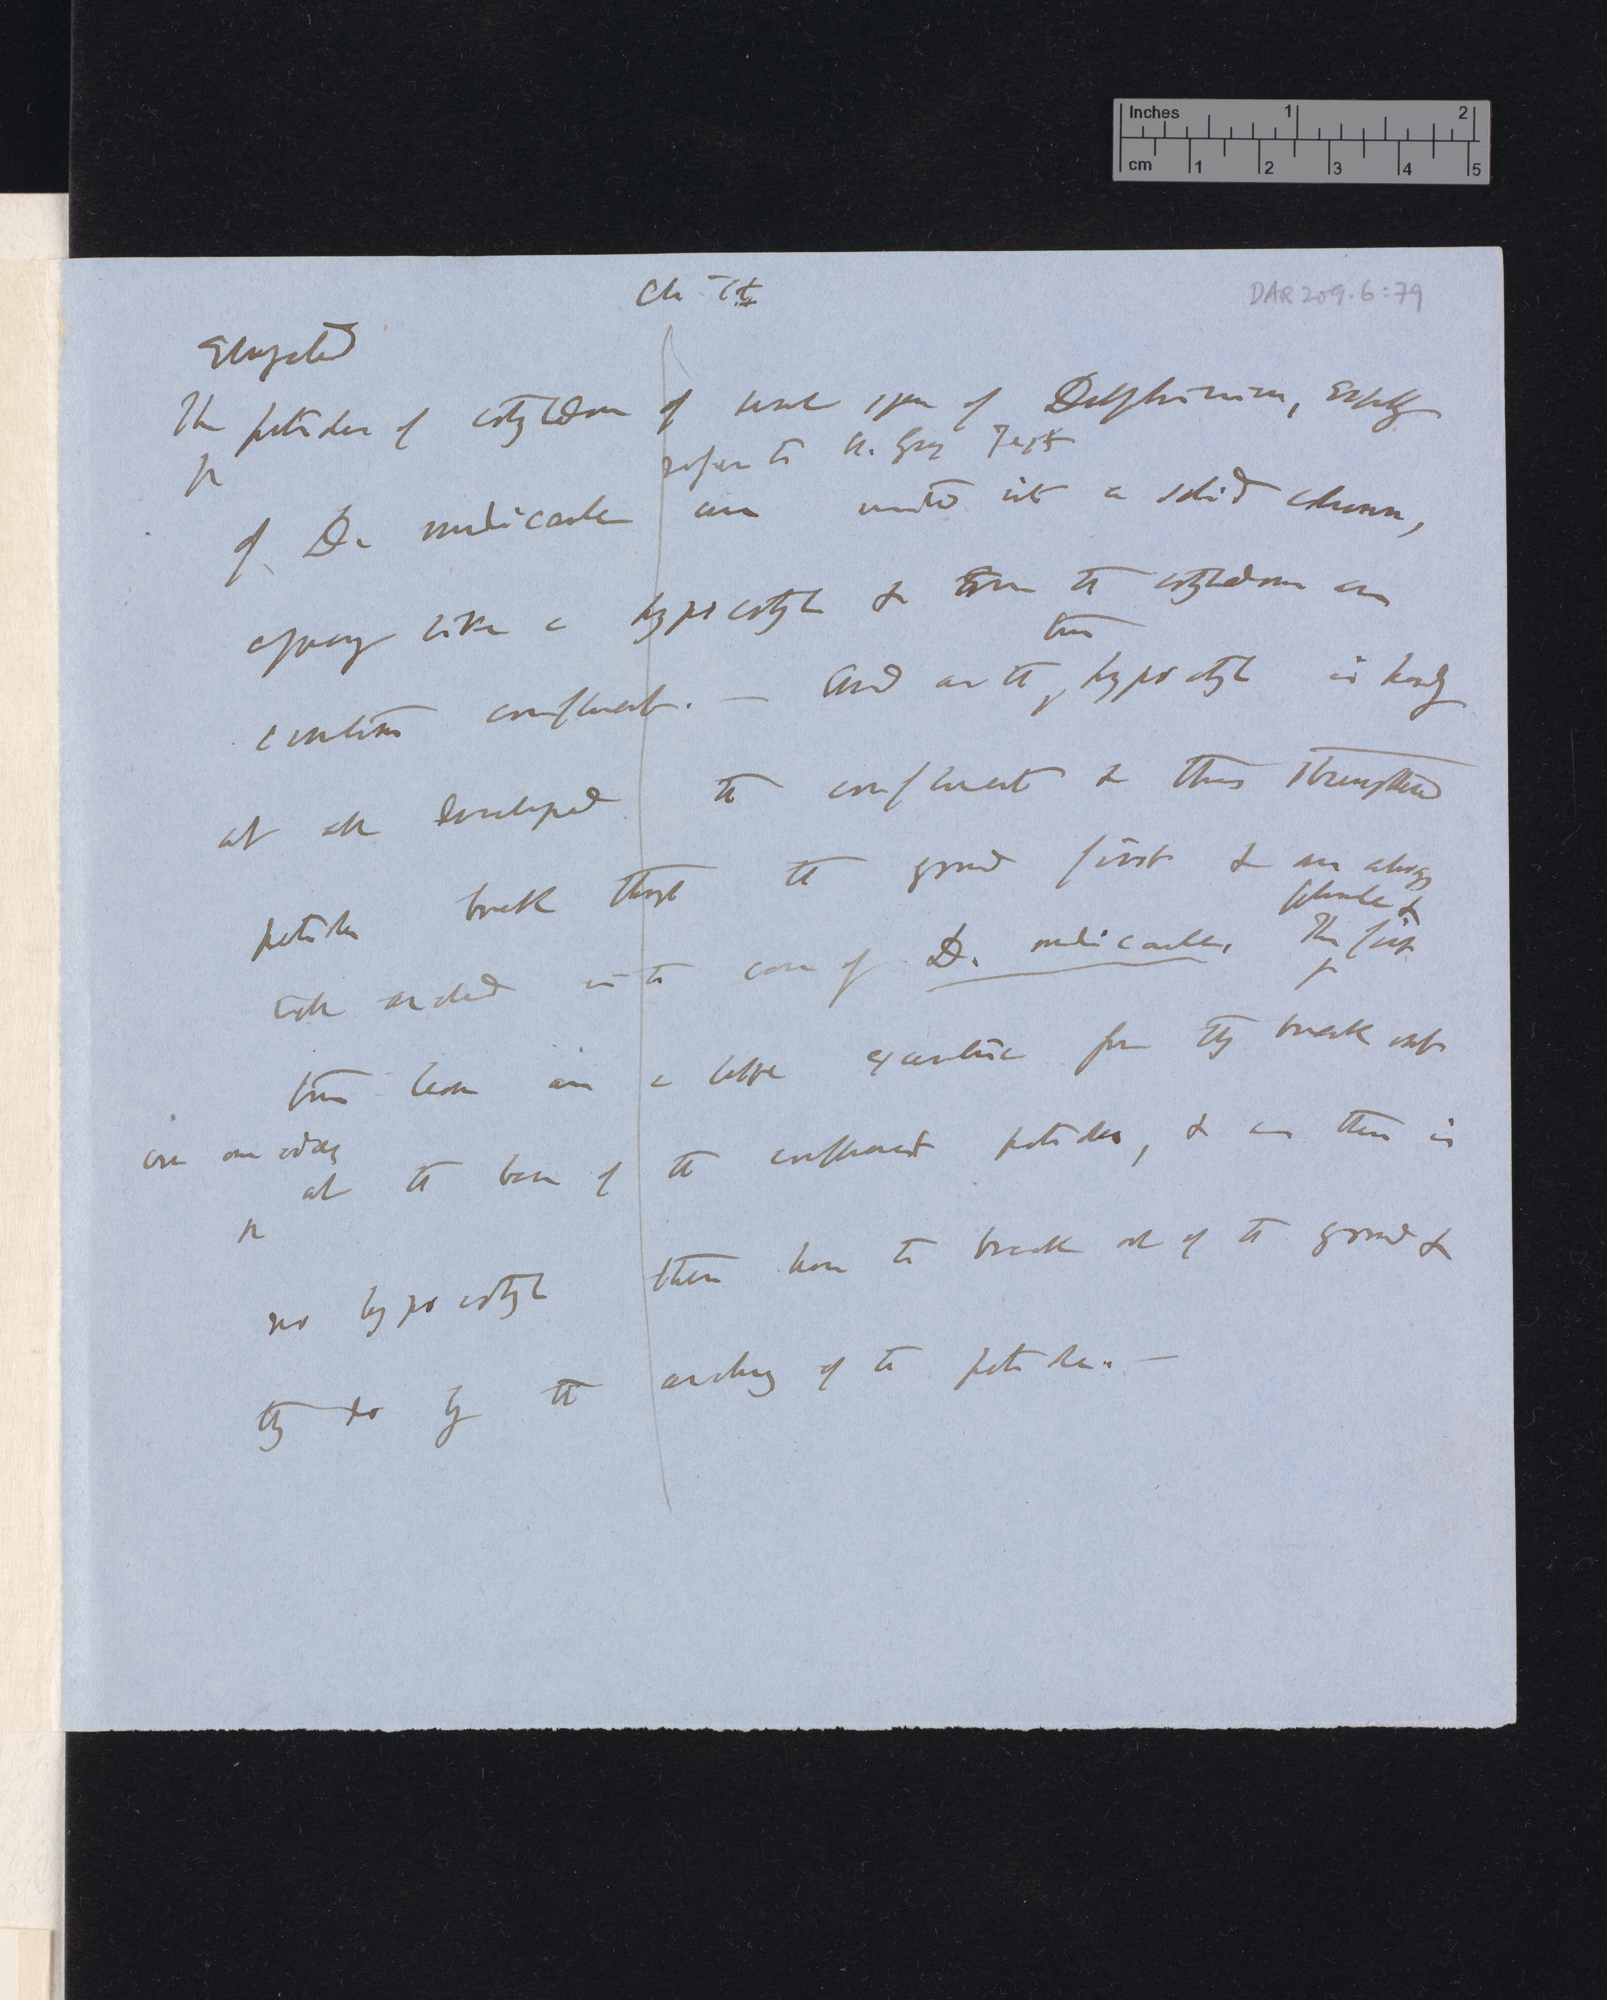 DAR 209.6:79
Elongated
The petioles of cotyledons of some spec of Delphinium, especially
refer to A. Gray Text
of D. nudicaule are united into a solid column,
appearing like a hypocotyl & the cotyledons are
confluent. — And as the true hypocotyl is hardly
at all developed the confluent & thus strengthened
petioles break through the ground first & are always
plumule &
arched in the case of D. nudicaule. The first
true leaves are a little exception for they break out
on one side
at the base of the confluent petioles, & as there is
no hypocotyl these have to break out of the ground &
they do by the arching of the petioles. —